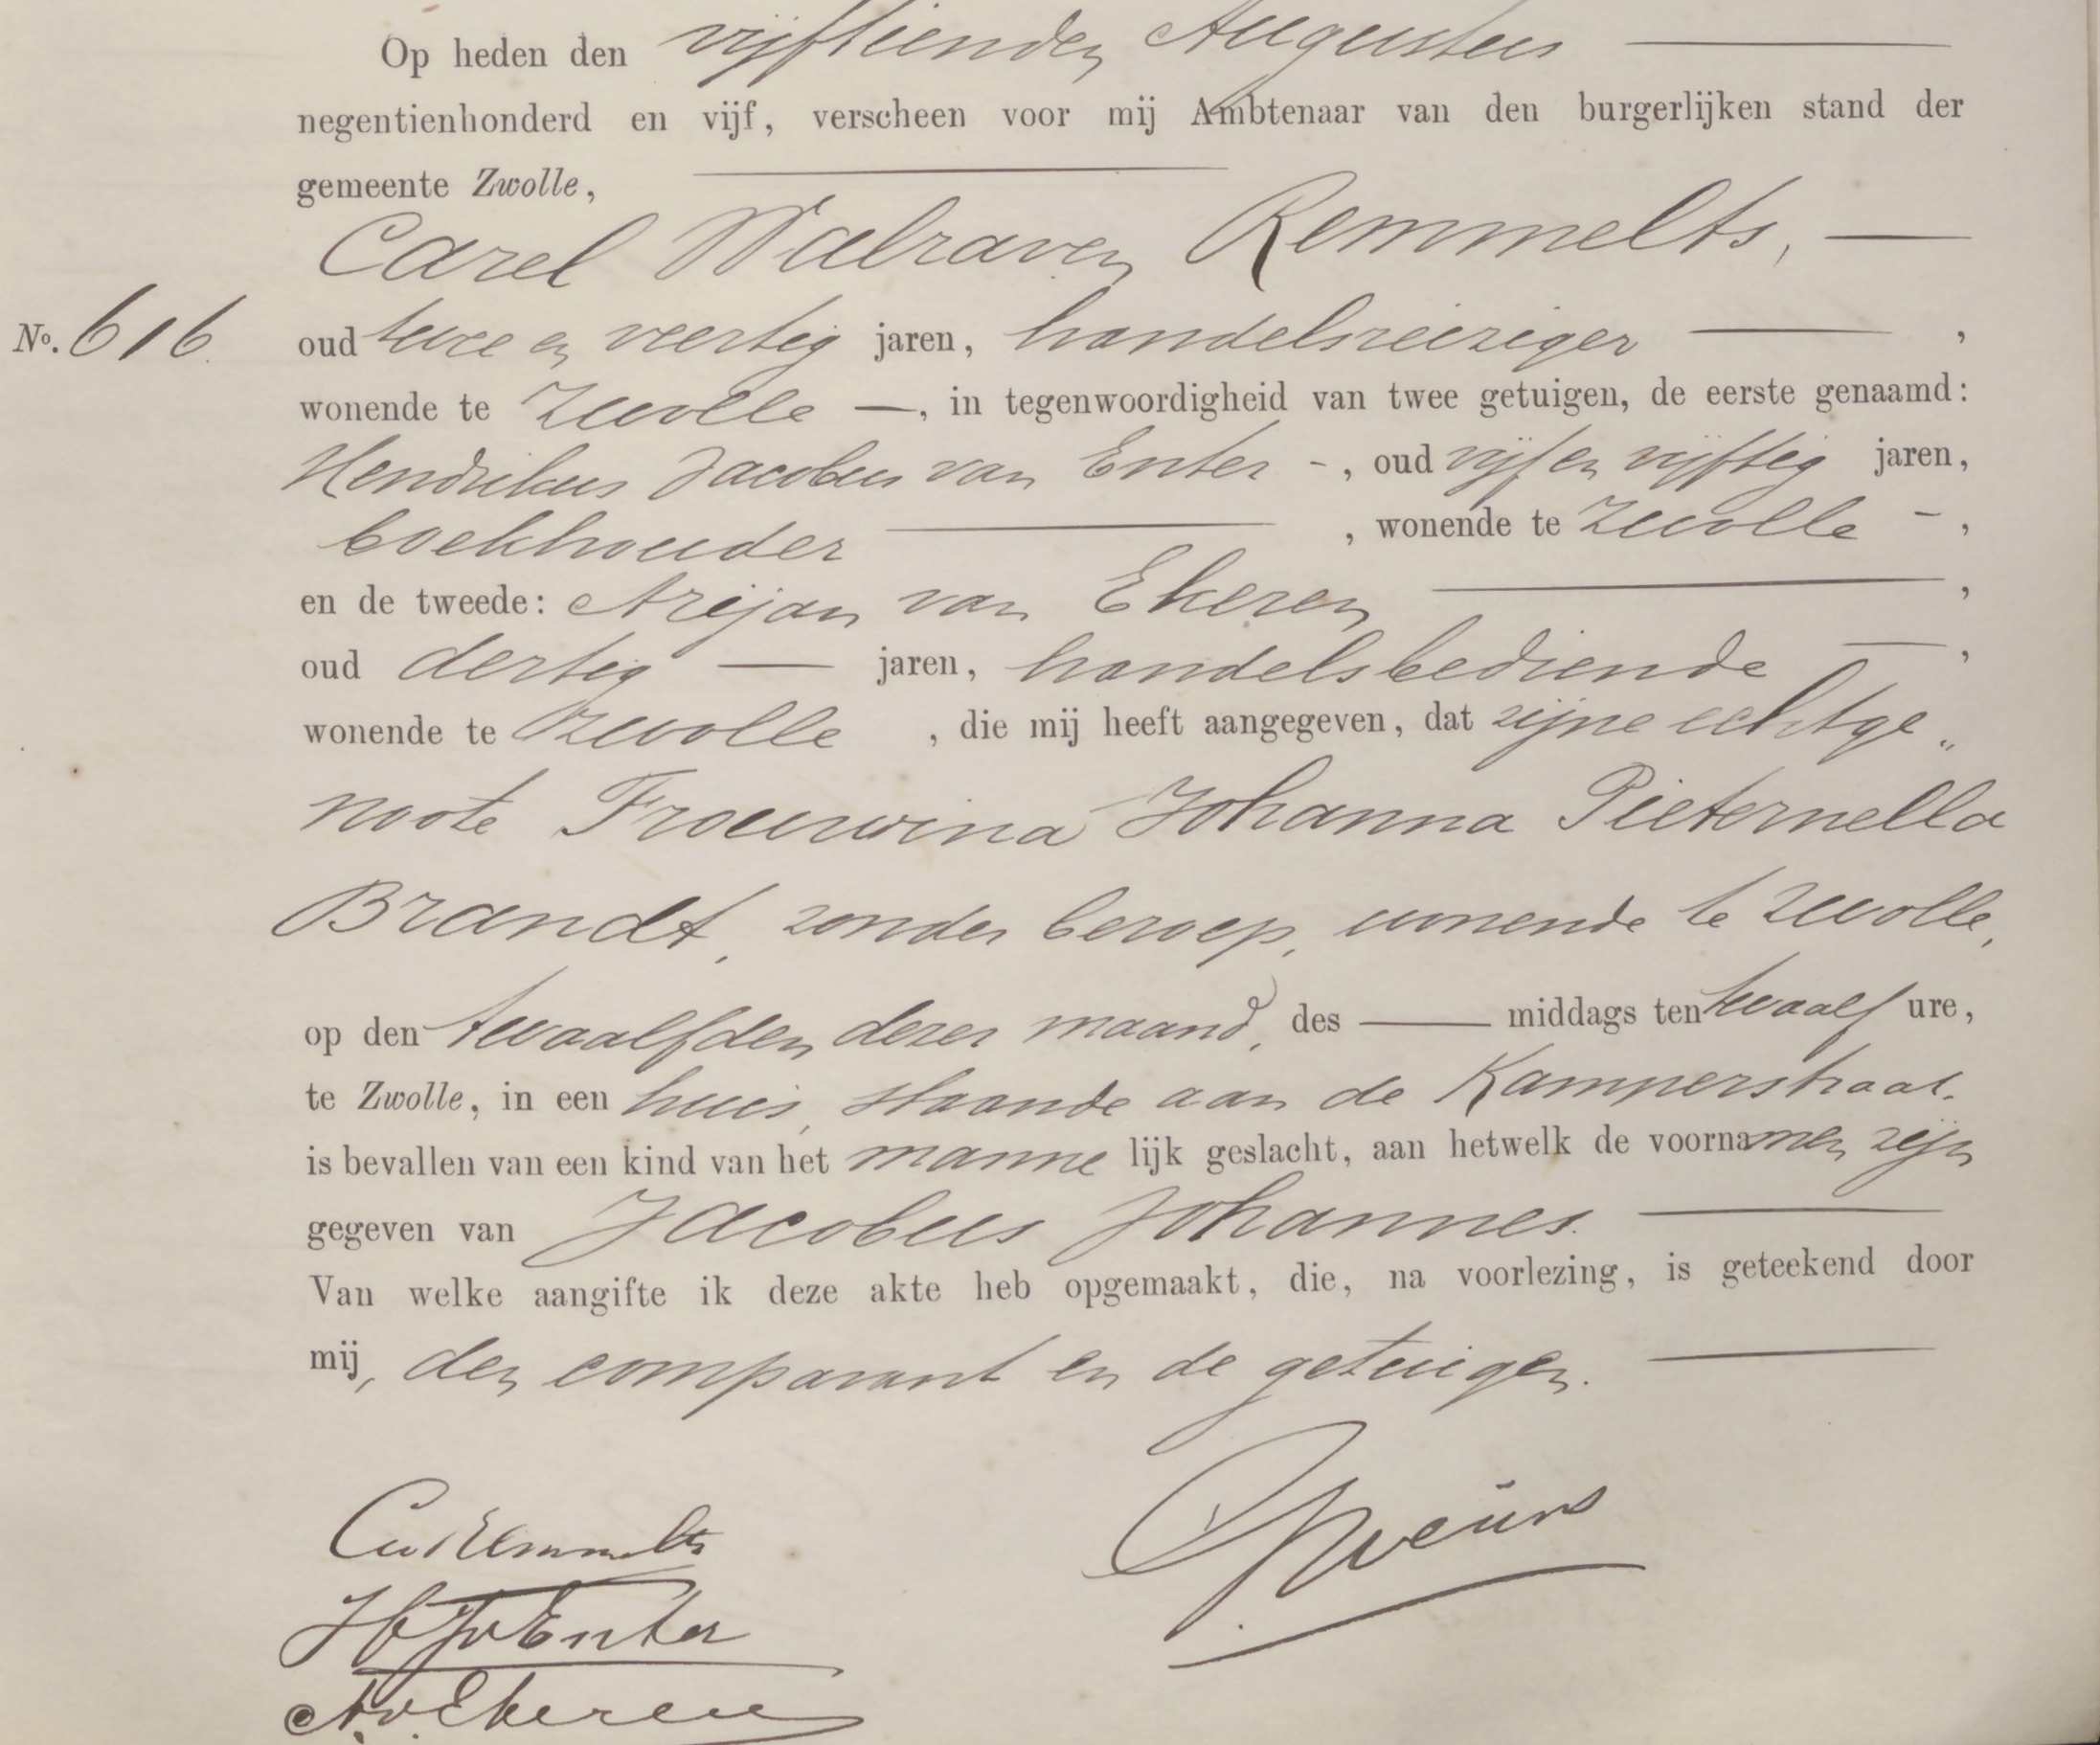 Op heden den vijftienden Augustus
negentienhonderd en vijf, verscheen voor mij Ambtenaar van den burgerlijken stand der
gemeente Zwolle,
Carel Walraven Remmelts,
No. 616. oud twee en veertig jaren, handelsreiziger ,
wonende te Zwolle —, in tegenwoordigheid van twee getuigen, de eerste genaamd:
Hendrikus Jacobus van Enter -, oud vijf en vijftig jaren,
boekhouder , wonende te Zwolle - ,
en de tweede: Arijan van Ekeren ,
oud dertig — jaren, handelsbediende — ,
wonende te Zwolle , die mij heeft aangegeven, dat zijne echtge„
noote Frouwina Johanna Pieternella
Brandt, zonder beroep, wonende te Zwolle,
op den twaalfden dezer maand, des — middags ten twaalf ure,
te Zwolle, in een huis, staande aan de Kamperstraat.
is bevallen van een kind van het mannelijk geslacht, aan hetwelk de voornamen zijn
gegeven van Jacobus Johannes.
Van welke aangifte ik deze akte heb opgemaakt, die, na voorlezing, is geteekend door
mij, den comparant en de getuigen.
CWRemmelts
HJvEnter
AvEkeren